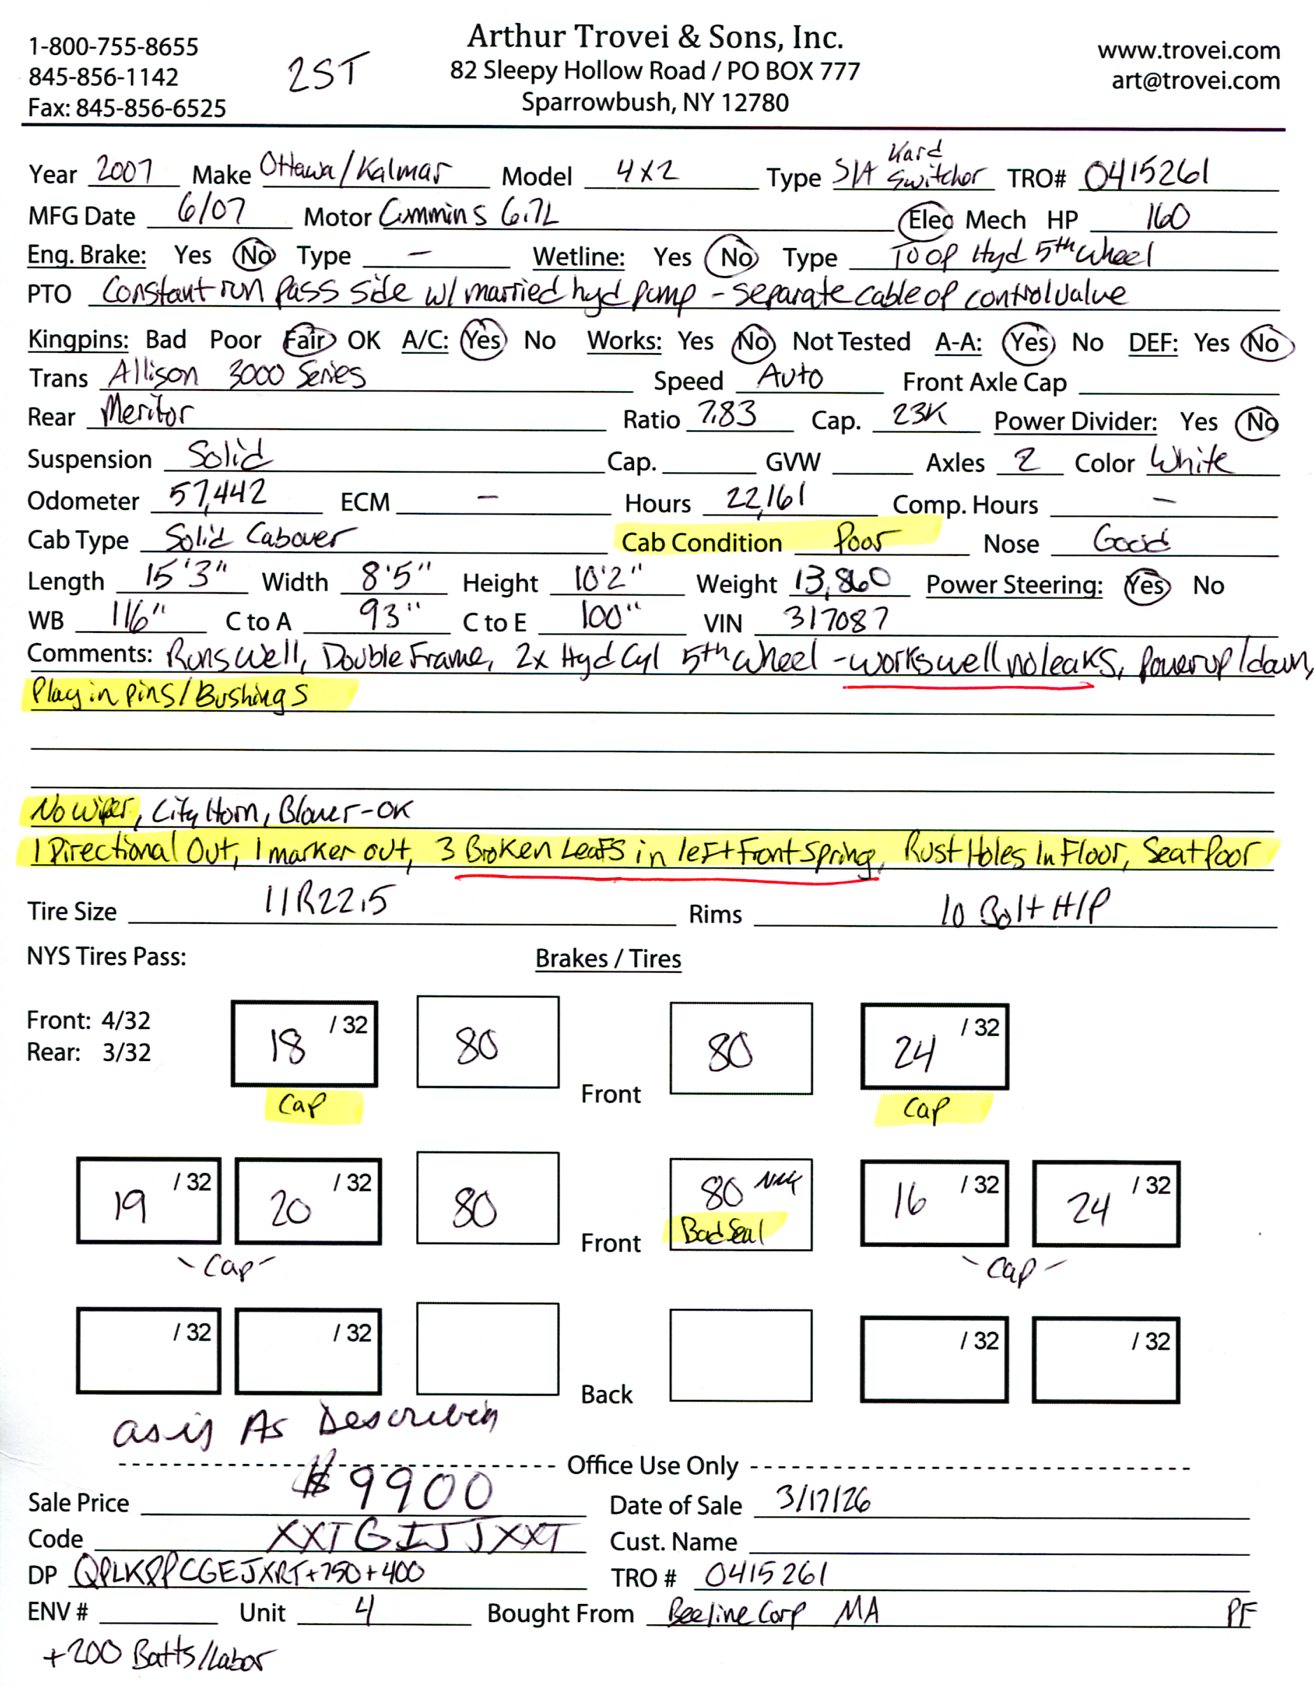 1-800-755-8655
845-856-1142
Fax: 845-856-6525
2ST
Arthur Trovei & Sons, Inc.
82 Sleepy Hollow Road / PO BOX 777
Sparrowbush, NY 12780
www.trovei.com
art@trovei.com
Year 2007 Make Ottawa/Kalmar Model 4x2 Type S/A Yard Switcher TRO# 0415261
MFG Date 6/07 Motor Cummins 6.7L Elec Mech HP 160
Eng. Brake: Yes No Type — Wetline: Yes No Type To op Hyd 5th Wheel
PTO Constant run pass side w/ married hyd pump - separate cable op control valve
Kingpins: Bad Poor Fair OK A/C: Yes No Works: Yes No Not Tested A-A: Yes No DEF: Yes No
Trans Allison 3000 Series Speed Auto Front Axle Cap
Rear Meritor Ratio 7.83 Cap. 23K Power Divider: Yes No
Suspension Solid Cap. GVW Axles 2 Color White
Odometer 57,442 ECM — Hours 22,161 Comp. Hours —
Cab Type Solid Cabover Cab Condition Poor Nose Good
Length 15'3" Width 8'5" Height 10'2" Weight 13,860 Power Steering: Yes No
WB 116" C to A 93" C to E 100" VIN 317087
Comments: Runs Well, Double Frame, 2x Hyd Cyl 5th Wheel - works well no leaks, power up/down,
Play in pins/Bushings
No Wiper, City Horn, Blower-OK
1 Directional Out, 1 marker out, 3 Broken Leafs in left Front Spring, Rust Holes In Floor, Seat Poor
Tire Size 11R22.5 Rims 10 Bolt H/P
NYS Tires Pass: Brakes / Tires
Front: 4/32
Rear: 3/32
18 /32 80 Front 80 24 /32
Cap Cap
19 /32 20 /32 80 Front 80 16 /32 24 /32
Bad Seal
-Cap- -Cap-
/32 /32 Back /32 /32
as is As Described
Office Use Only
Sale Price $9900 Date of Sale 3/17/26
Code XXTGIJJXXT Cust. Name
DP +750+400 TRO # 0415261
ENV # Unit 4 Bought From Beeline Corp MA PF
+200 Batts/Labor